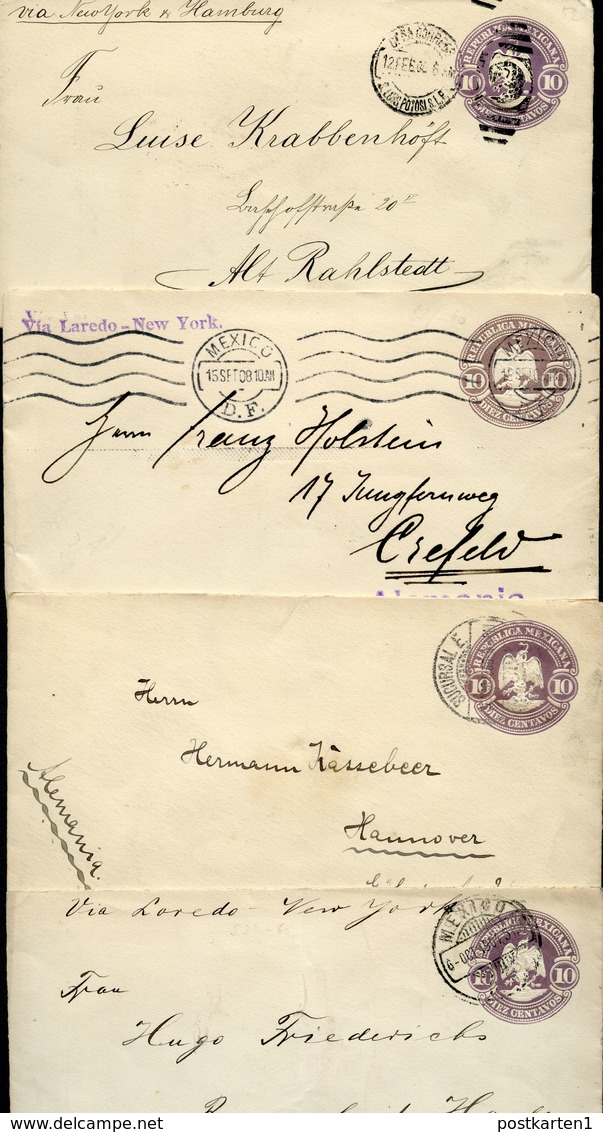 via New York & Hamburg
REPUBLICA MEXICANA
10 10
DIEZ CENTAVOS
12 FEB
S. LUIS POTOSI S.L.P.
Frau
Luise Krabbenhöft
Bahnhofstraße 20 II
Alt Rahlstedt
Via Laredo - New York.
MEXICO
15 SET 08 10 AM
D.F.
REPUBLICA MEXICANA
10 10
DIEZ CENTAVOS
Herrn Franz Holstein
17 Jungfernweg
Crefeld
Alemania
SUCURSAL E.
REPUBLICA MEXICANA
10 10
DIEZ CENTAVOS
Herrn
Hermann Kässebeer
Hannover
Alemania.
Via Laredo - New York
MEXICO
REPUBLICA MEXICANA
10 10
DIEZ CENTAVOS
Frau
Hugo Friederichs
postkarten1